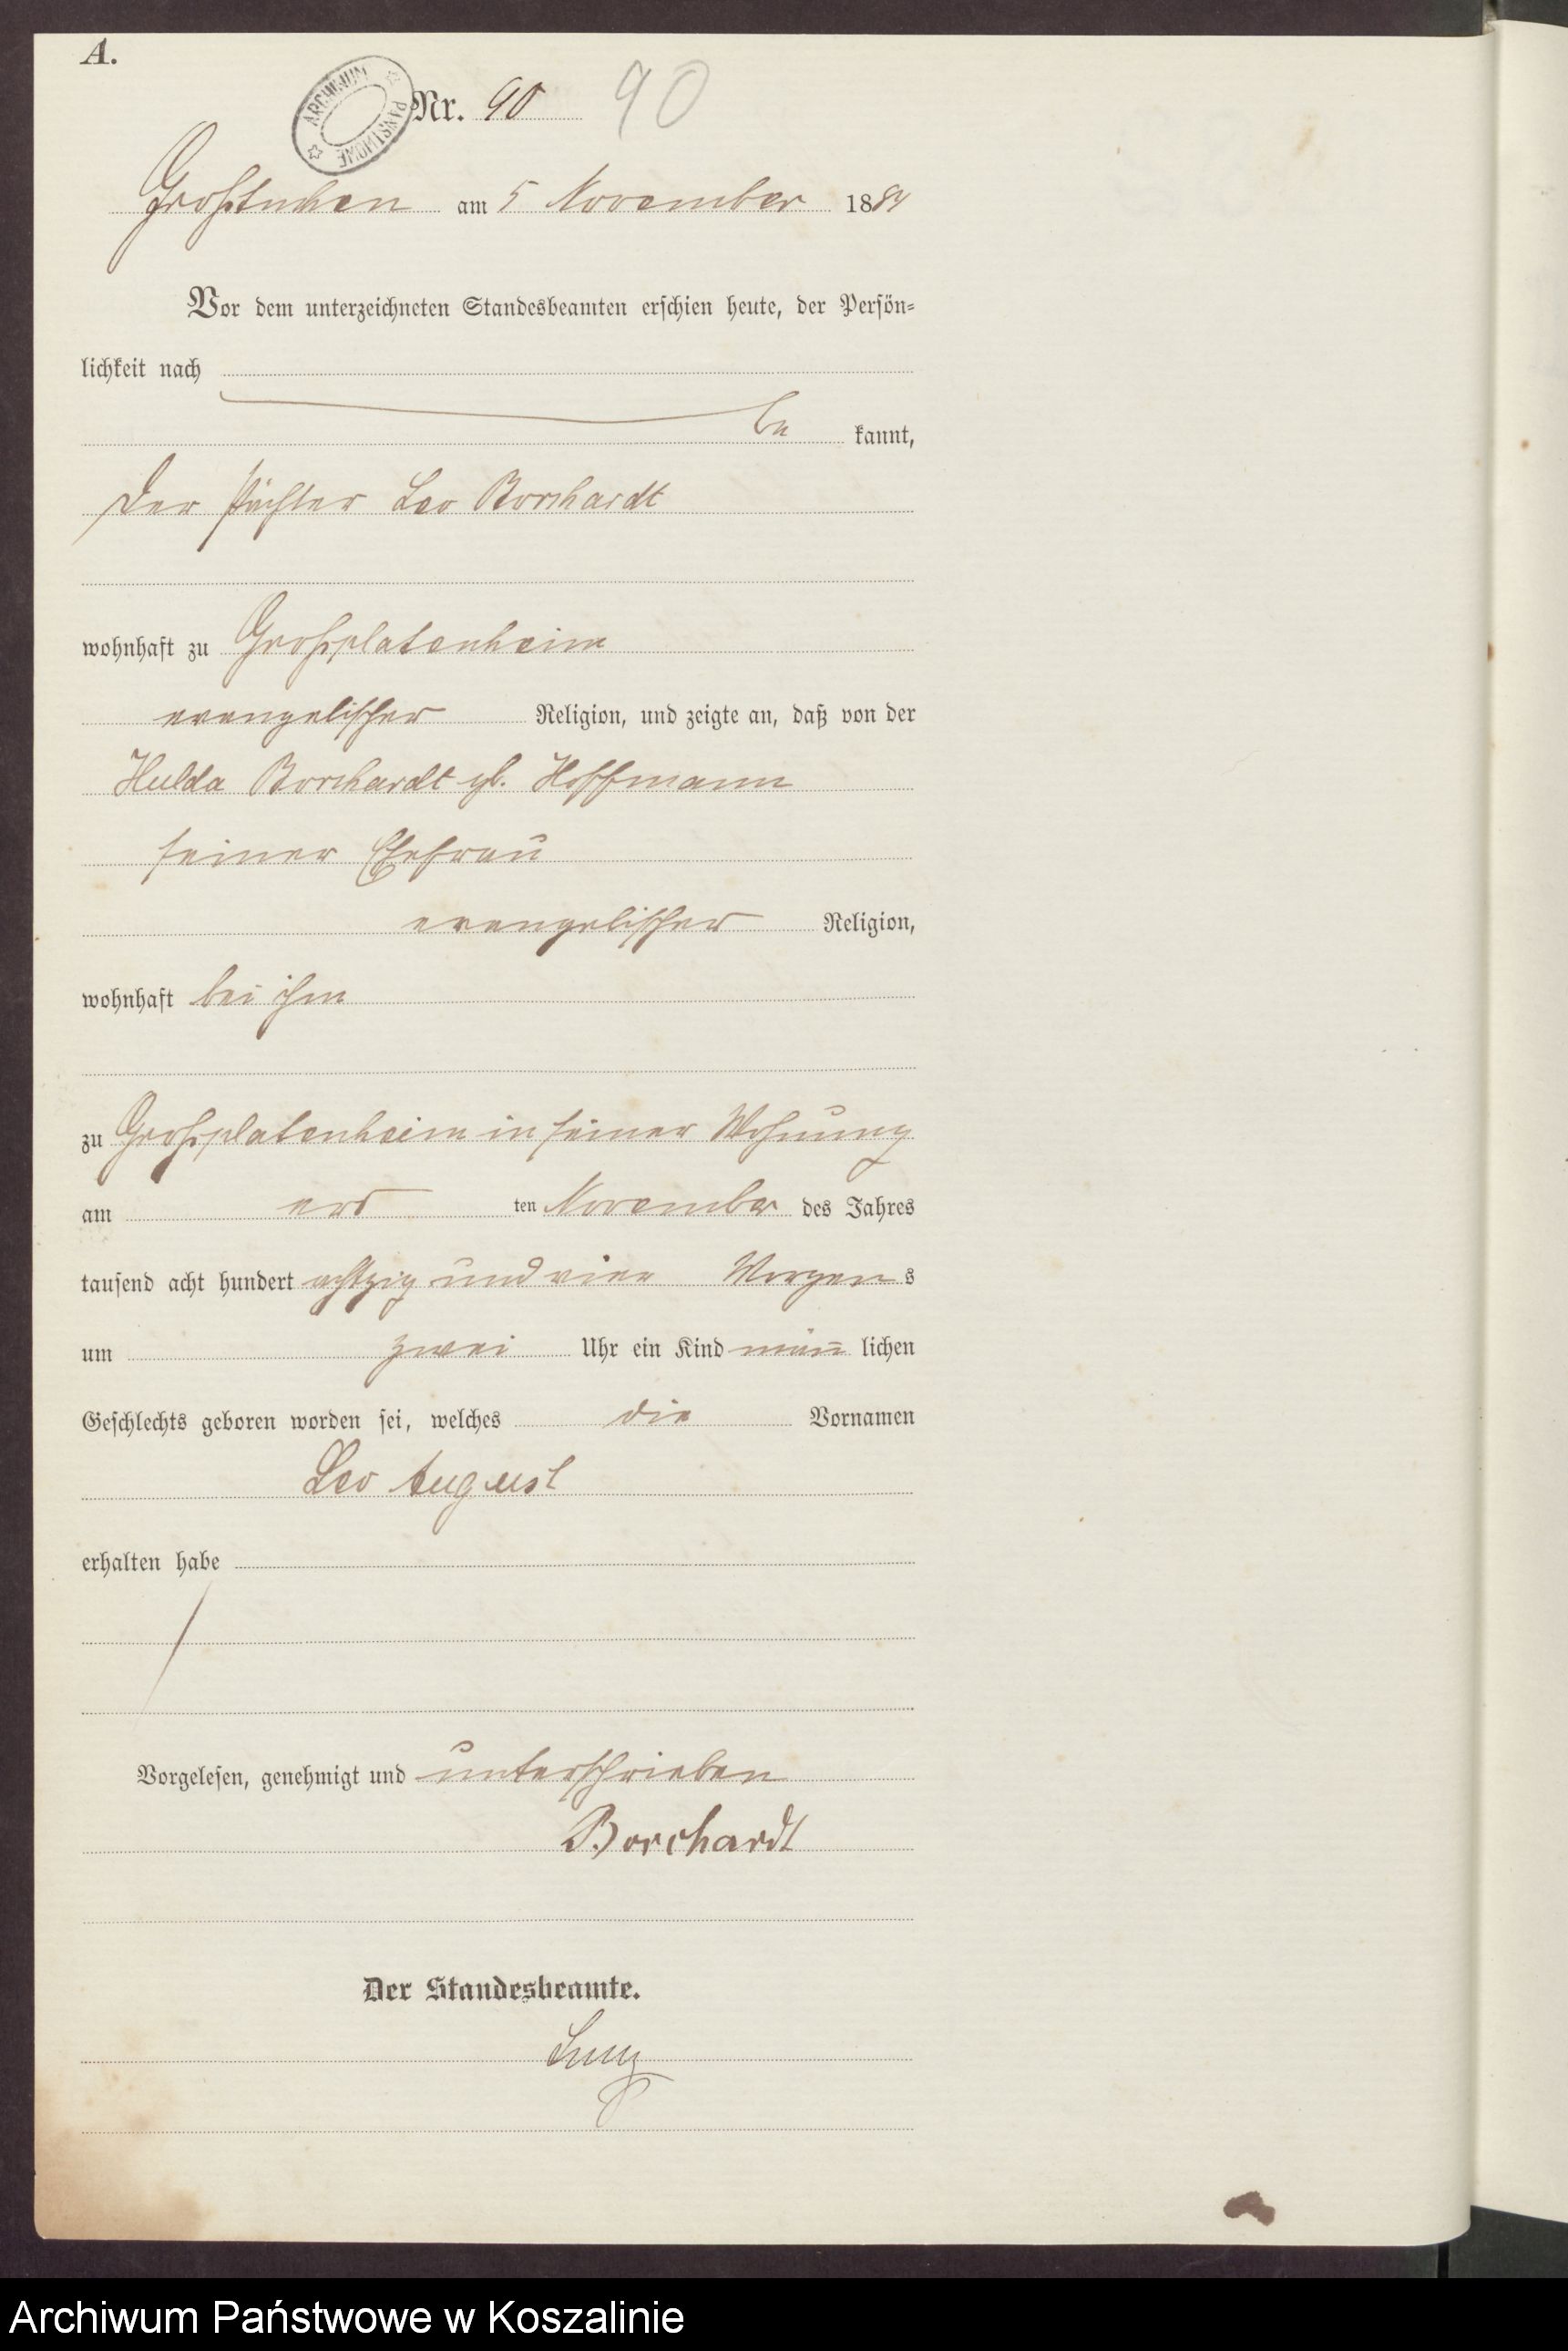 A.
ARCHIWUM PAŃSTWOWE
Nr. 90 90
Großtuchen am 5 November 1884
Vor dem unterzeichneten Standesbeamten erschien heute, der Persön-
lichkeit nach
be kannt,
der Pächter Leo Borchardt
wohnhaft zu Großplatenheim
evangelischer Religion, und zeigte an, daß von der
Hulda Borchardt gb. Hoffmann
seiner Ehefrau
evangelischer Religion,
wohnhaft bei ihm
zu Großplatenheim in seiner Wohnung
am ers ten November des Jahres
tausend acht hundert achtzig und vier Morgen s
um zwei Uhr ein Kind män̄ lichen
Geschlechts geboren worden sei, welches die Vornamen
Leo August
erhalten habe
Vorgelesen, genehmigt und unterschrieben
Borchardt
Der Standesbeamte.
Archiwum Państwowe w Koszalinie